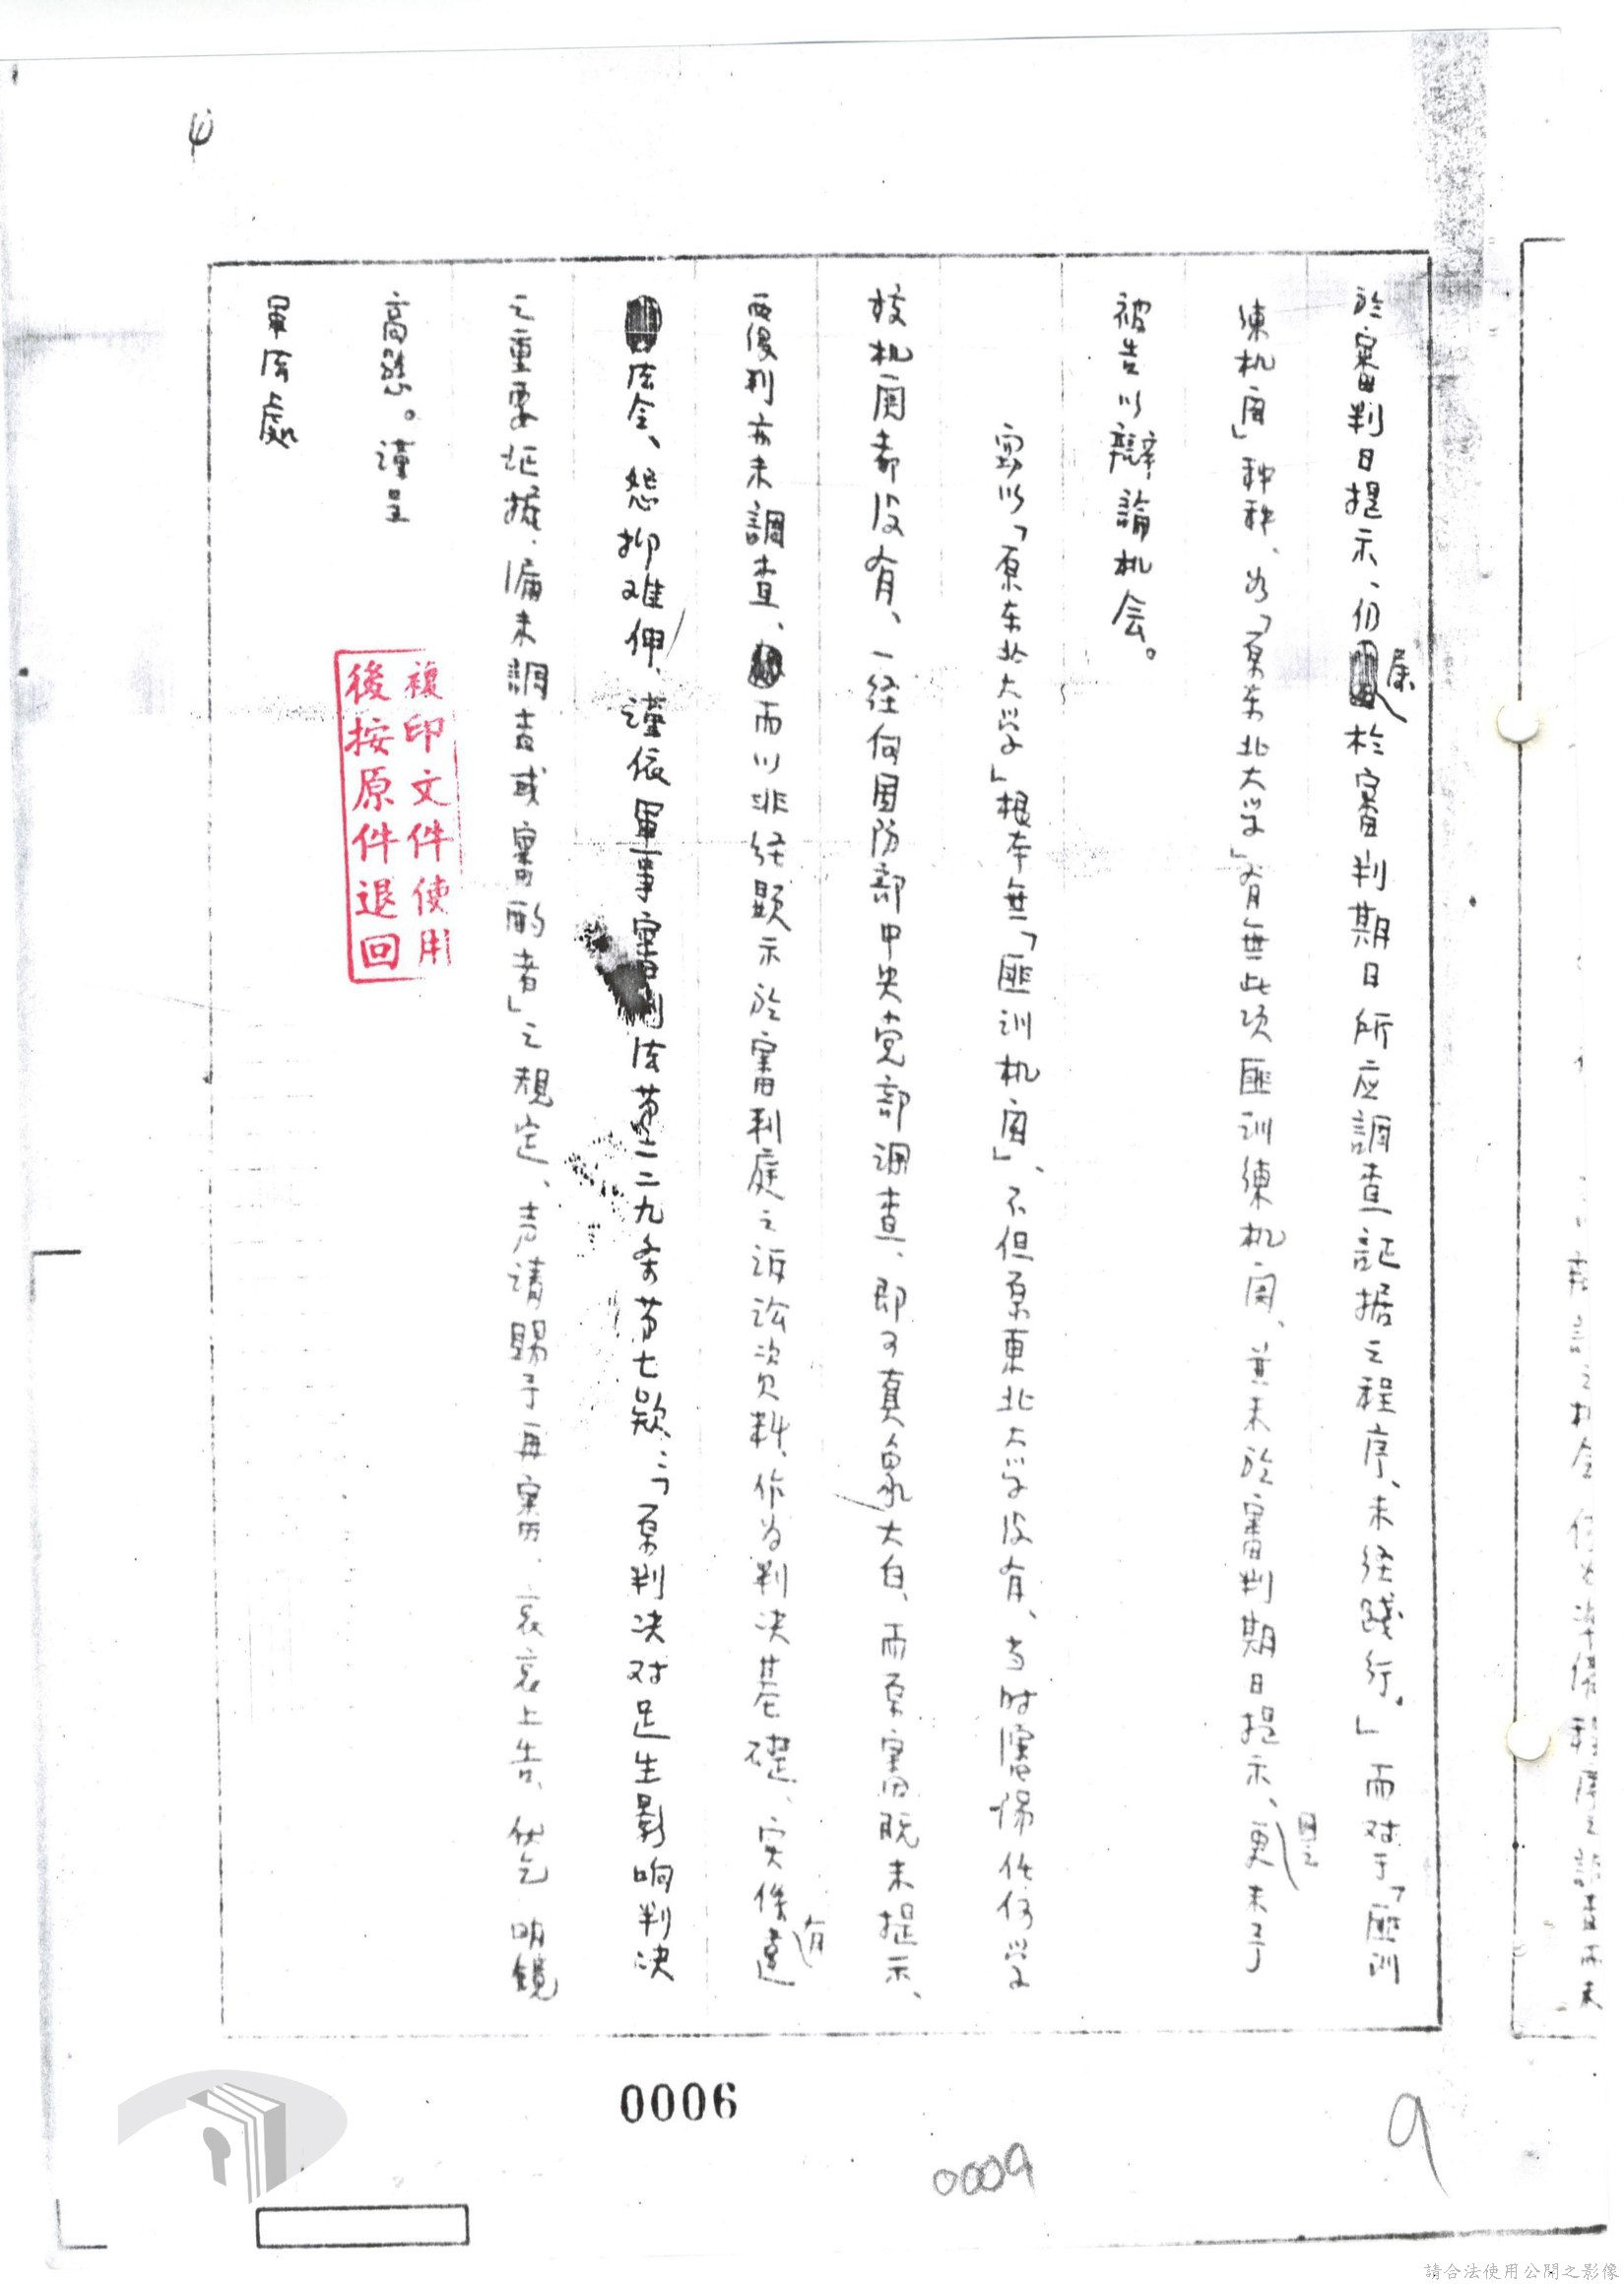 於審判日提示、仍属於審判期日所应調查証据之程序、未経踐行。」而对于「匪訓
練机関」种种、为「原东北大学」有無此项匪訓練机関、并未於審判期日提示、更未予
被告以辯論机会。
窃以「原东北大学」根本無「匪训机関」、不但原東北大学没有、当时瀋陽任何学
校机関都没有、一经向国防部中央党部调查、即可真象大白、而原審既未提示、
而復判亦未調查、而以非经顯示於審判庭之訴訟資料、作为判决基礎、实係有違
法令、怨抑难伸、謹依軍事審判法第二二九条第七款、「原判决对足生影响判决
之重要证據、漏未調查或審酌者」之規定、声请賜予再審、哀哀上告、伏乞 明鏡
高懸。謹呈
軍法處
複印文件使用
後按原件退回
0006
0009
9
請合法使用公開之影像